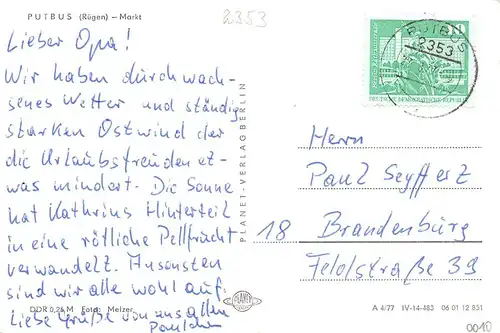 PUTBUS (Rügen) – Markt
2353
Lieber Opa!
Wir haben durchwach-
senes Wetter und ständig
starken Ostwind der
die Urlaubsfreuden et-
was mindert. Die Sonne
hat Kathrins Hinterteil
in eine rötliche Pellfrucht
verwandelt. Ansonsten
sind wir alle wohl auf.
Liebe Grüße von uns allen
DDR 0,25 M Foto: Melzer
PLANET-VERLAG BERLIN
PLANET
PUTBUS
2353
10
DEUTSCHE DEMOKRATISCHE REPUBLIK
Herrn
Paul Seyffert
18 Brandenburg
Feldstraße 39
A 4/77 IV-14-483 06 01 12 851
0010